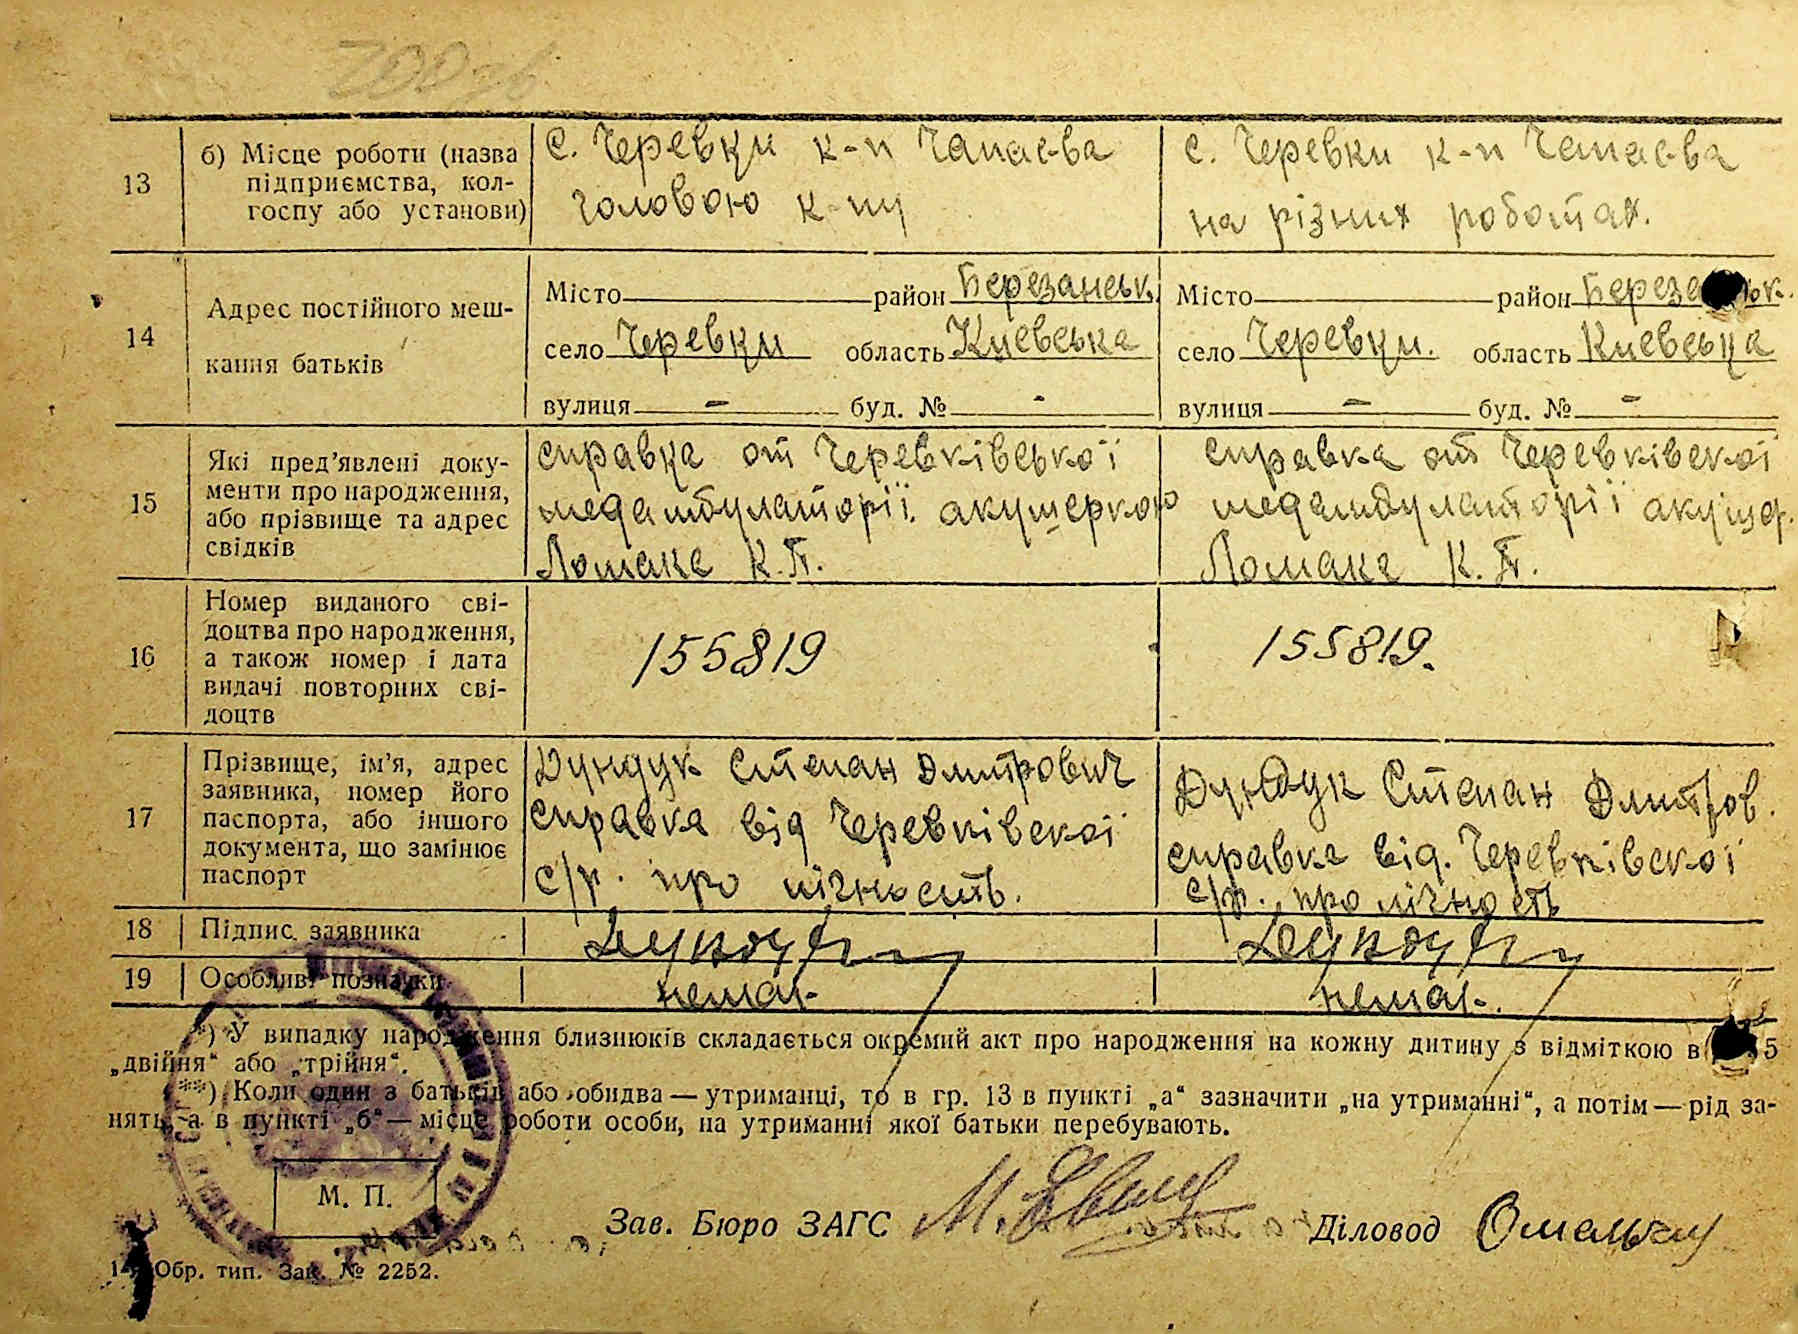 13
б) Місце роботи (назва
підприємства, кол-
госпу або установи)
с. Черевки к-п Чапаєва
головою к-пу
с. Черевки к-п Чапаєва
на різних роботах.
14
Адрес постійного меш-
кання батьків
Місто район Березанськ.
село Черевки область Києвська
вулиця - буд. № -
Місто район
село Черевки. область Києвська
вулиця - буд. № -
15
Які пред'явлені доку-
менти про народження,
або прізвище та адрес
свідків
справка от Черевківської
медамбулаторії. акушеркою
Ломака К.П.
справка от Черевківскої
медамбулаторії акушер.
Ломака К.П.
16
Номер виданого сві-
доцтва про народження,
а також номер і дата
видачі повторних сві-
доцтв
155819
155819.
17
Прізвище, ім'я, адрес
заявника, номер його
паспорта, або іншого
документа, що замінює
паспорт
Дундук Степан Дмитрович
справка від Черевківскої
с/р. про лічность.
Дундук Степан Дмитров.
справка від. Черевківскої
с/р. про лічность
18
Підпис заявника
Дундук
Дундук
19
Особливі позначки
немає.
немає.
*) У випадку народження близнюків складається окремий акт про народження на кожну дитину з відміткою в 5
„двійня“ або „трійня“.
**) Коли один з батьків або обидва — утриманці, то в гр. 13 в пункті „а“ зазначити „на утриманні“, а потім — рід за-
нять, а в пункті „б“ — місце роботи особи, на утриманні якої батьки перебувають.
М. П.
Зав. Бюро ЗАГС М. Діловод
Обр. тип. Зак. № 2252.